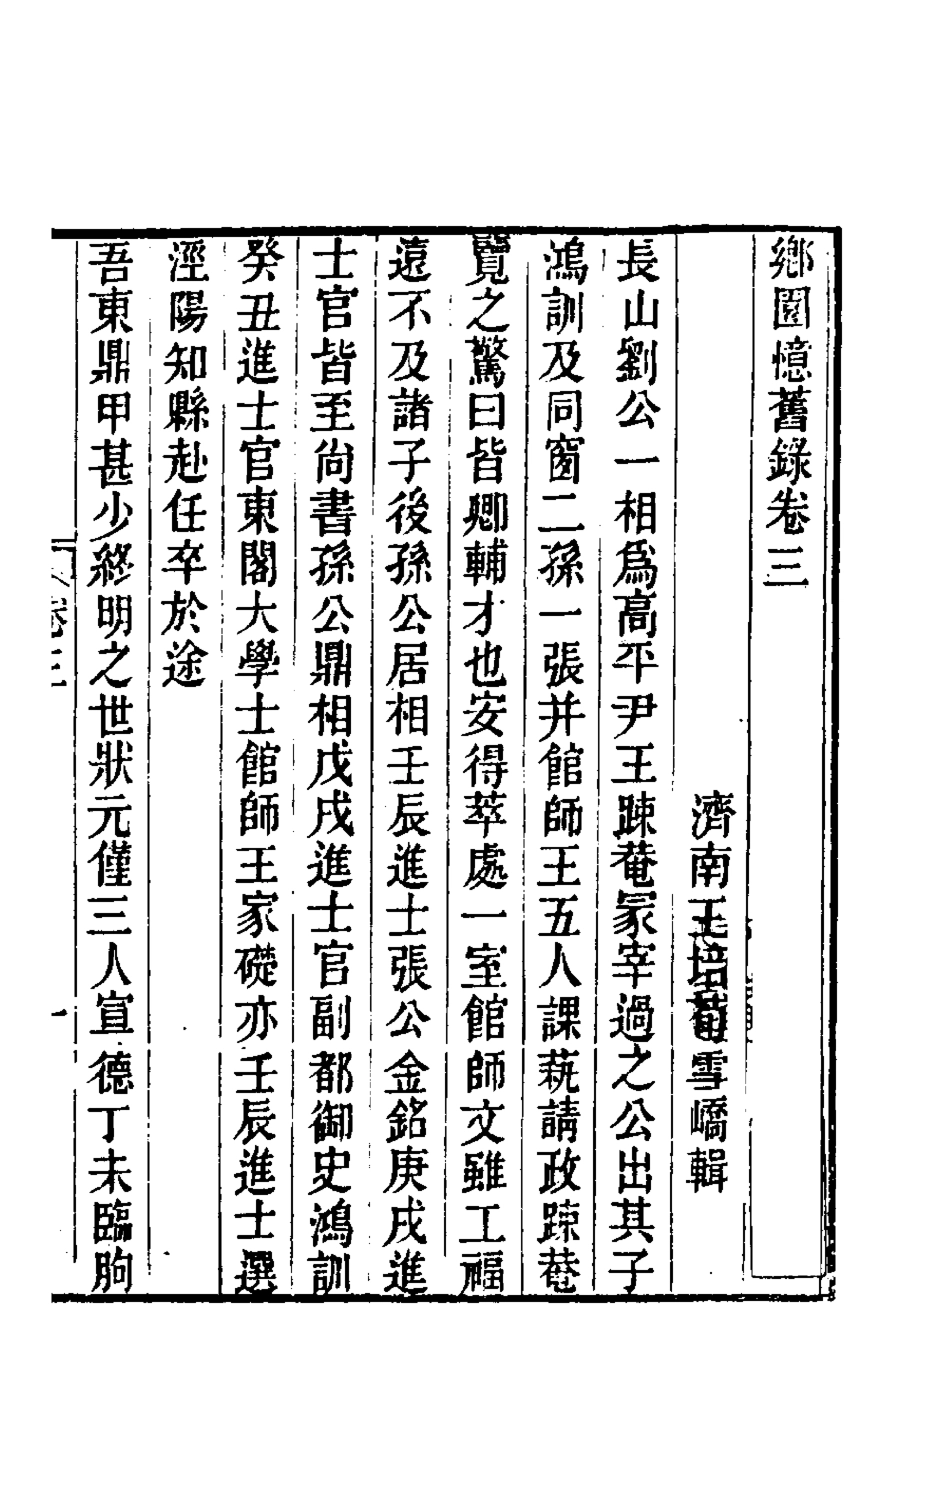 鄉園憶舊錄卷三
濟南王培荀雪嶠輯
長山劉公一相爲高平尹王踈菴冢宰過之公出其子
鴻訓及同窗二孫一張并館師王五人課蓺請政踈菴
覽之驚曰皆卿輔才也安得萃處一室館師文雖工福
遠不及諸子後孫公居相壬辰進士張公金銘庚戌進
士官皆至尚書孫公鼎相戊戌進士官副都御史鴻訓
癸丑進士官東閣大學士館師王家礎亦壬辰進士選
涇陽知縣赴任卒於途
吾東鼎甲甚少終明之世狀元僅三人宣德丁未臨朐
卷三
一